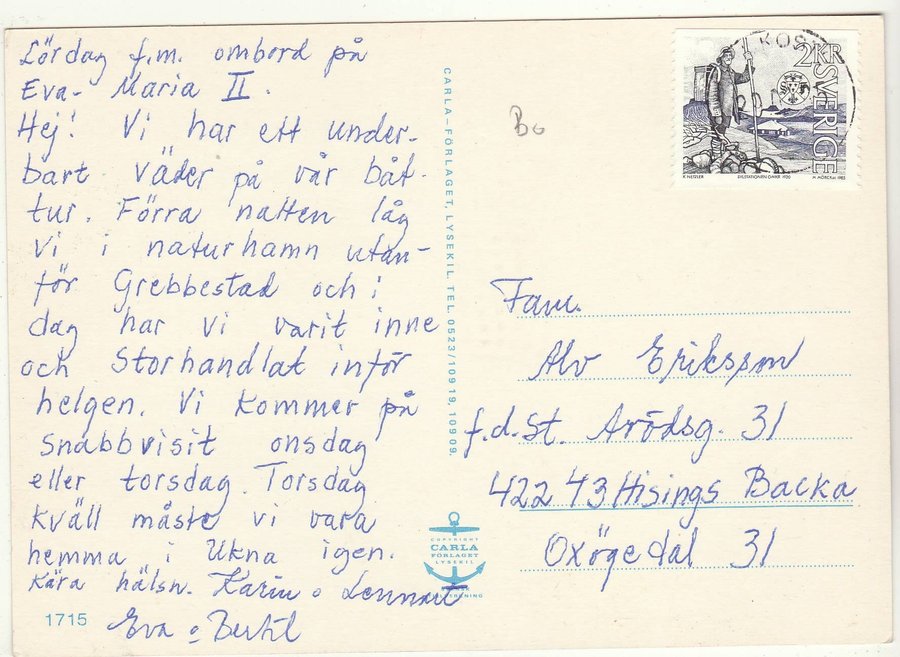 Lördag f.m. ombord på
Eva-Maria II.
Hej! Vi har ett under-
bart väder på vår båt-
tur. Förra natten låg
vi i naturhamn utan-
för Grebbestad och i
dag har vi varit inne
och storhandlat inför
helgen. Vi kommer på
snabbvisit onsdag
eller torsdag. Torsdag
kväll måste vi vara
hemma i Ukna igen.
Kära hälsn. Karin o Lennart
Eva o Bertil
1715
CARLA-FÖRLAGET, LYSEKIL. TEL. 0523/109 19, 109 09.
COPYRIGHT
CARLA
FÖRLAGET
LYSEKIL
Bo
KOS
2KR
SVERIGE
Fam.
Alv Eriksson
f.d. St. Arödsg. 31
422 43 Hisings Backa
Oxögedal 31